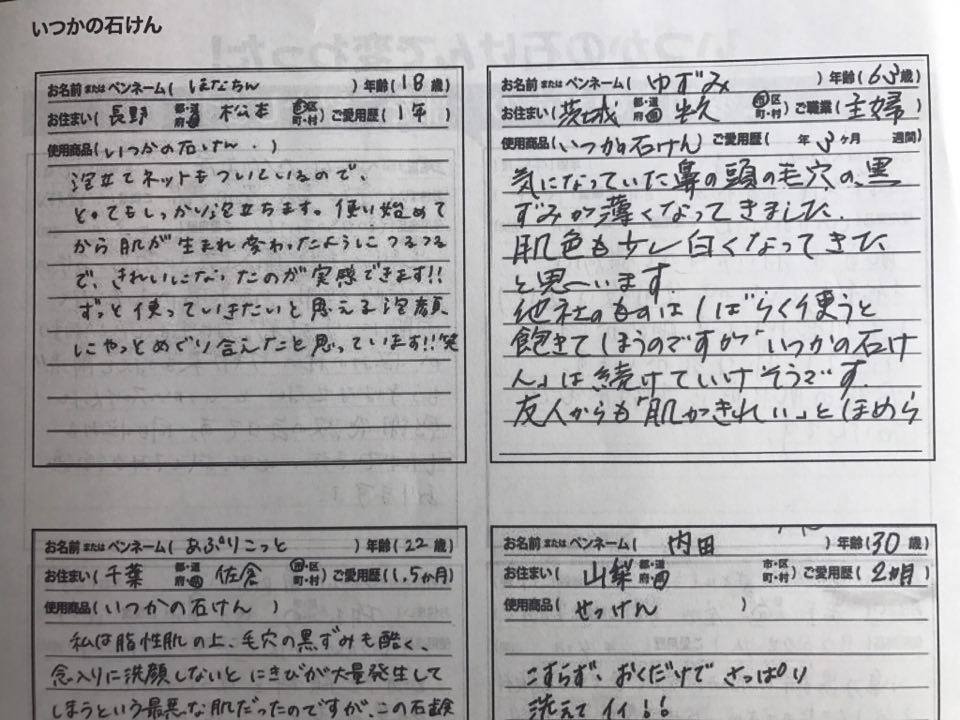 いつかの石けん
お名前 または ペンネーム( ほなちん ) 年齢(18歳)
お住まい(長野 都・道 府・県 松本 市・区 町・村) ご愛用歴(1年)
使用商品(いつかの石けん.)
泡立てネットもついているので、
とってもしっかり泡立ちます。使い始めて
から肌が生まれ変わったようにつるつる
で、きれいになったのが実感できます!!
ずっと使っていきたいと思える泡顔
にやっとめぐり合えたと思っています!!笑
お名前 または ペンネーム( ゆずみ ) 年齢(63歳)
お住まい(茨城 都・道 府・県 牛久 市・区 町・村) ご職業(主婦)
使用商品(いつかの石けん) ご愛用歴( 年 3ヶ月 週間)
気になっていた鼻の頭の毛穴の、黒
ずみが薄くなってきました.
肌色も少し白くなってきた
と思います.
他社のものはしばらく使うと
飽きてしまうのですが「いつかの石け
ん」は続けていけそうです.
友人からも「肌がきれい」とほめら
お名前 または ペンネーム( あぷりこっと ) 年齢(22歳)
お住まい(千葉 都・道 府・県 佐倉 市・区 町・村) ご愛用歴(1.5か月)
使用商品(いつかの石けん)
私は脂性肌の上、毛穴の黒ずみも酷く、
念入りに洗顔しないとにきびが大量発生して
しまうという最悪な肌だったのですが、この石鹸
お名前 または ペンネーム( 内田 ) 年齢(30歳)
お住まい( 山梨 都・道 府・県 市・区 町・村) ご愛用歴(2ヵ月)
使用商品( せっけん )
こすらず、おくだけで さっぱり
洗えて イイ!!